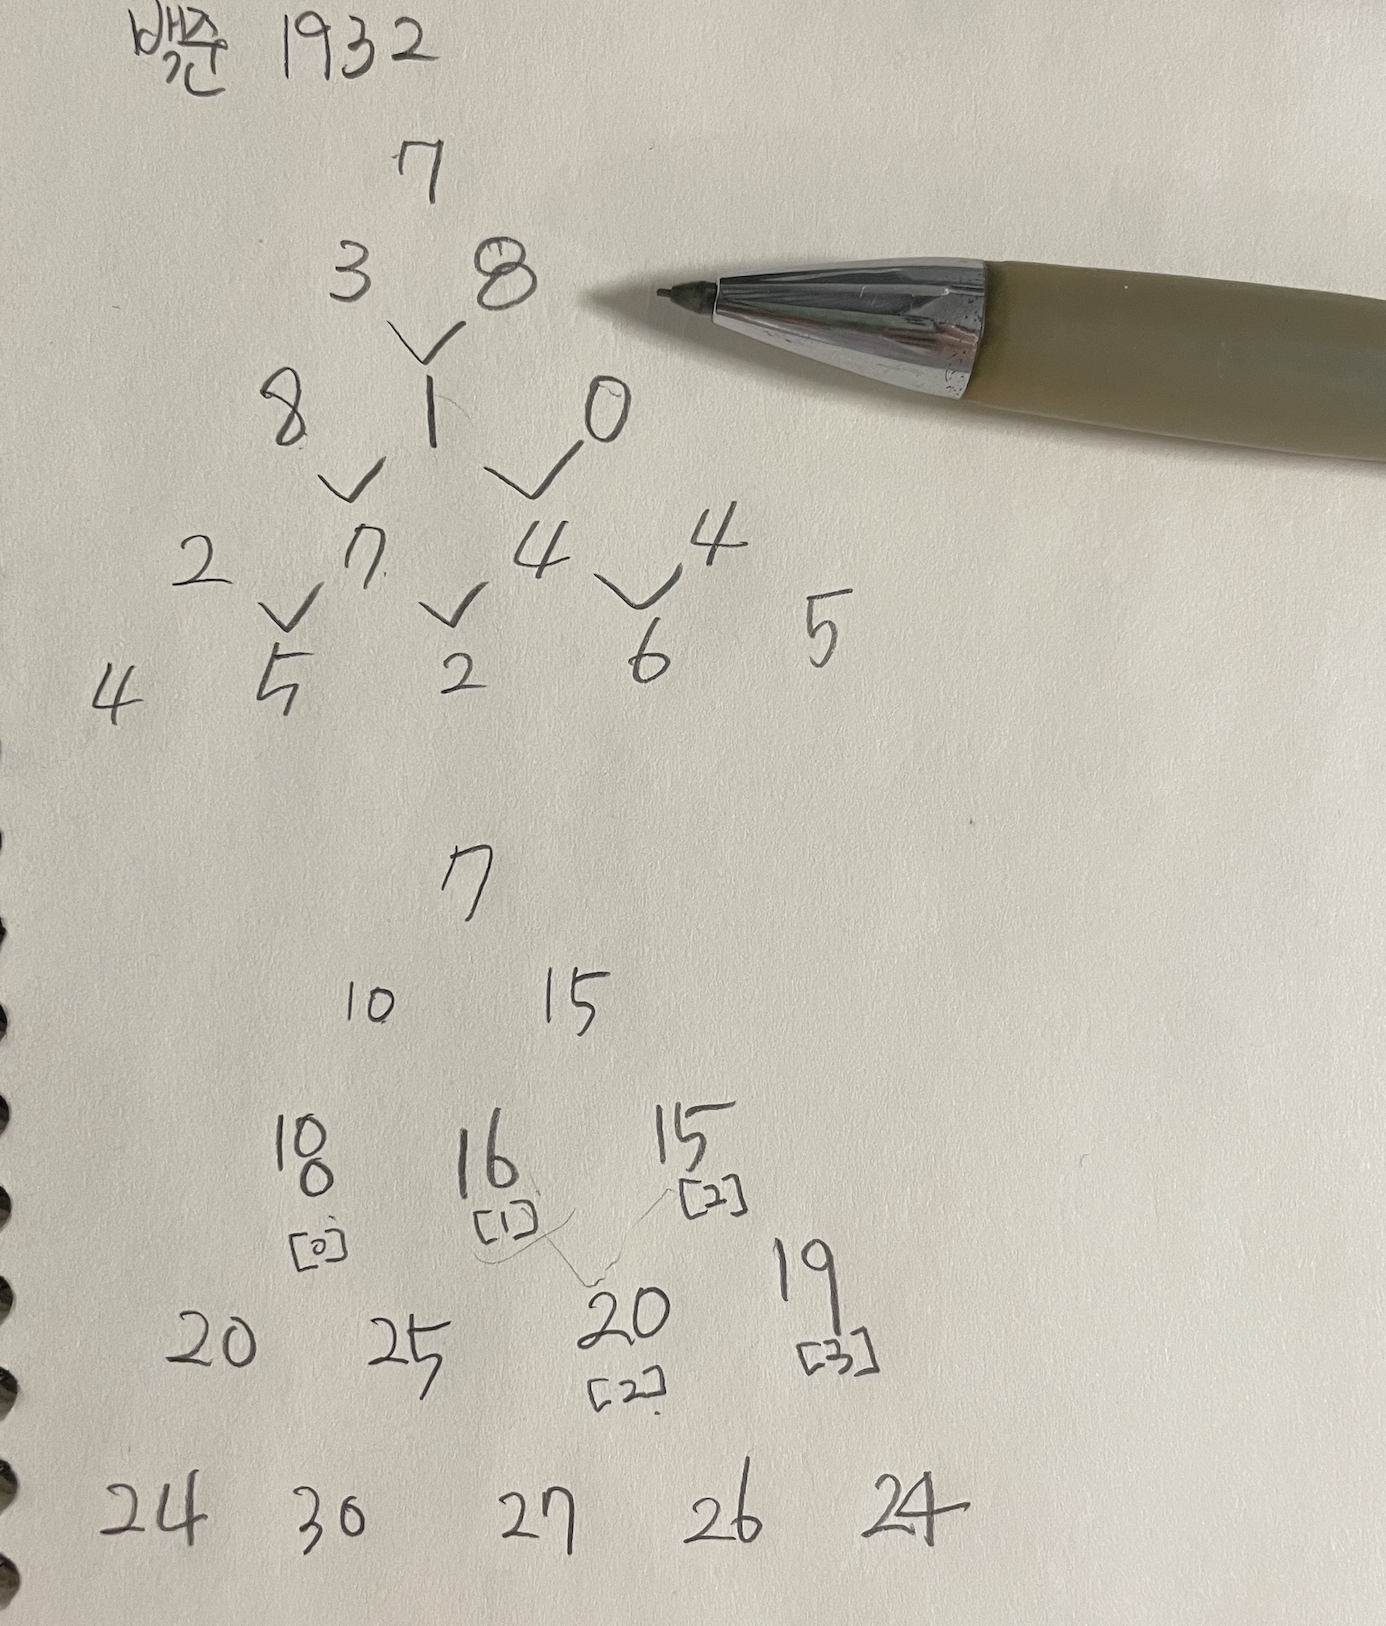 백준 1932
7
3 8
8 1 0
2 7 4 4
4 5 2 6 5
7
10 15
18 16 15
[0] [1] [2]
20 25 20 19
[2] [3]
24 30 27 26 24